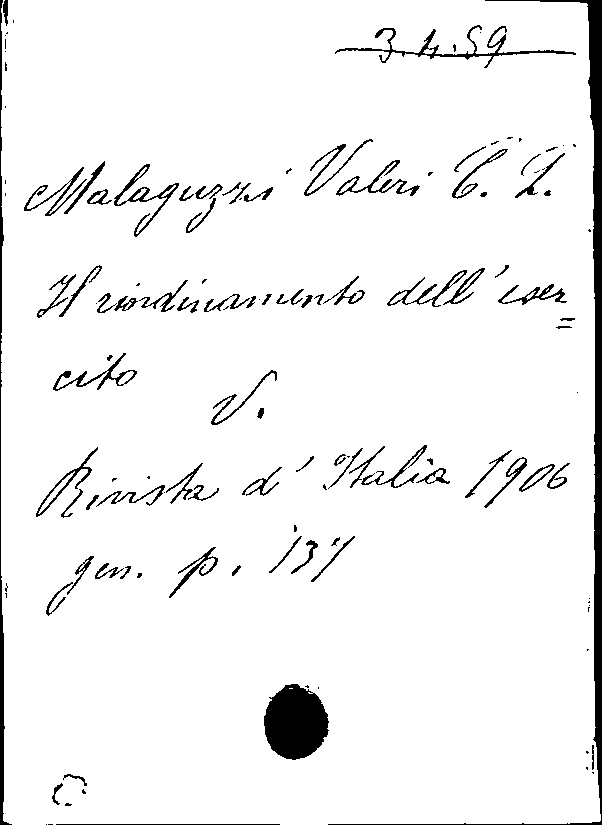 3.4.59
Malaguzzi Valeri C. L.
Il riordinamento dell'eser=
cito
V.
Rivista d'Italia 1906
gen. p. 137